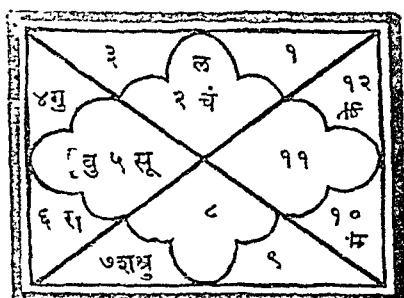 ३ ल १
४गु २ चं १२
बु ५ सू ११
६ रा ८ १०
७शशु ९